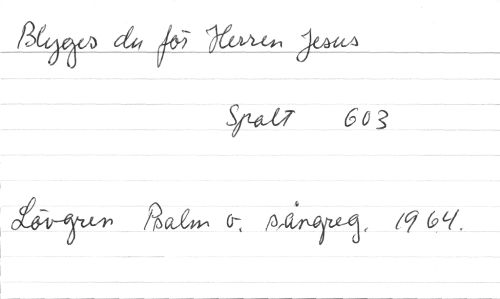 Blyges du för Herren Jesus
Spalt 603
Lövgren Psalm o. sångreg. 1964.